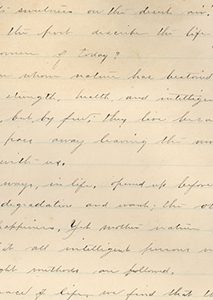 on the desert air.
the poet describe the life
women of today?
on whom nature has bestowed
strength, health, and intelligence
but by far, they live
pass away leaving the
with us.
ways, in life, opened up before
degradation and want: the
happiness. Yet mother nature
all intelligent persons
methods are followed.
of life, we find that